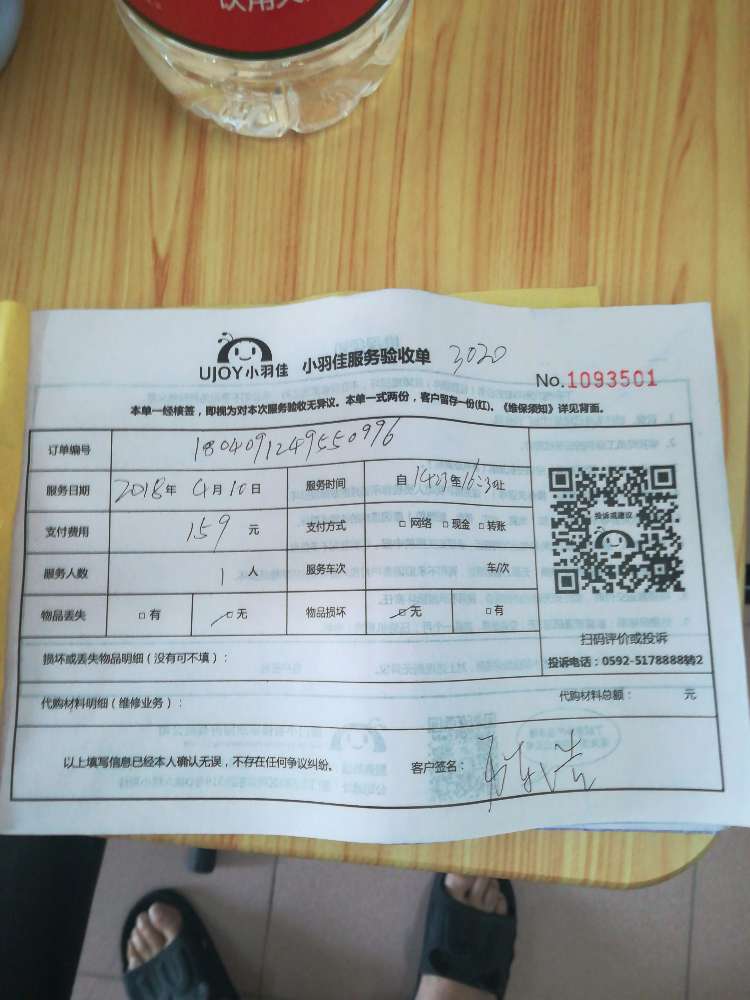 饮用天
UJOY小羽佳 小羽佳服务验收单 3020
No.1093501
本单一经核签，即视为对本次服务验收无异议。本单一式两份，客户留存一份(红)。《维保须知》详见背面。
订单编号 1804091249550996
服务日期 2018年 4月10日 服务时间 自 14:23 至 16:30 止
支付费用 159 元 支付方式 □ 网络 □ 现金 □ 转账
投诉或建议
服务人数 1 人 服务车次 车/次
物品丢失 □ 有 □ 无 物品损坏 □ 无 □ 有
扫码评价或投诉
损坏或丢失物品明细（没有可不填）：
投诉电话：0592-5178888转2
代购材料明细（维修业务）： 代购材料总额： 元
以上填写信息已经本人确认无误，不存在任何争议纠纷。 客户签名：